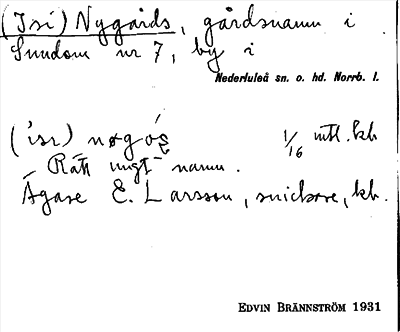 (Isi) Nygårds, gårdsnamn i
Sundom nr 7, by i
Nederluleå sn. o. hd. Norrb. l.
(isı) nøgós 1/16 mtl. kb
Rätt ungt namn.
Ägare E. Larsson, snickare, kb.
EDVIN BRÄNNSTRÖM 1931